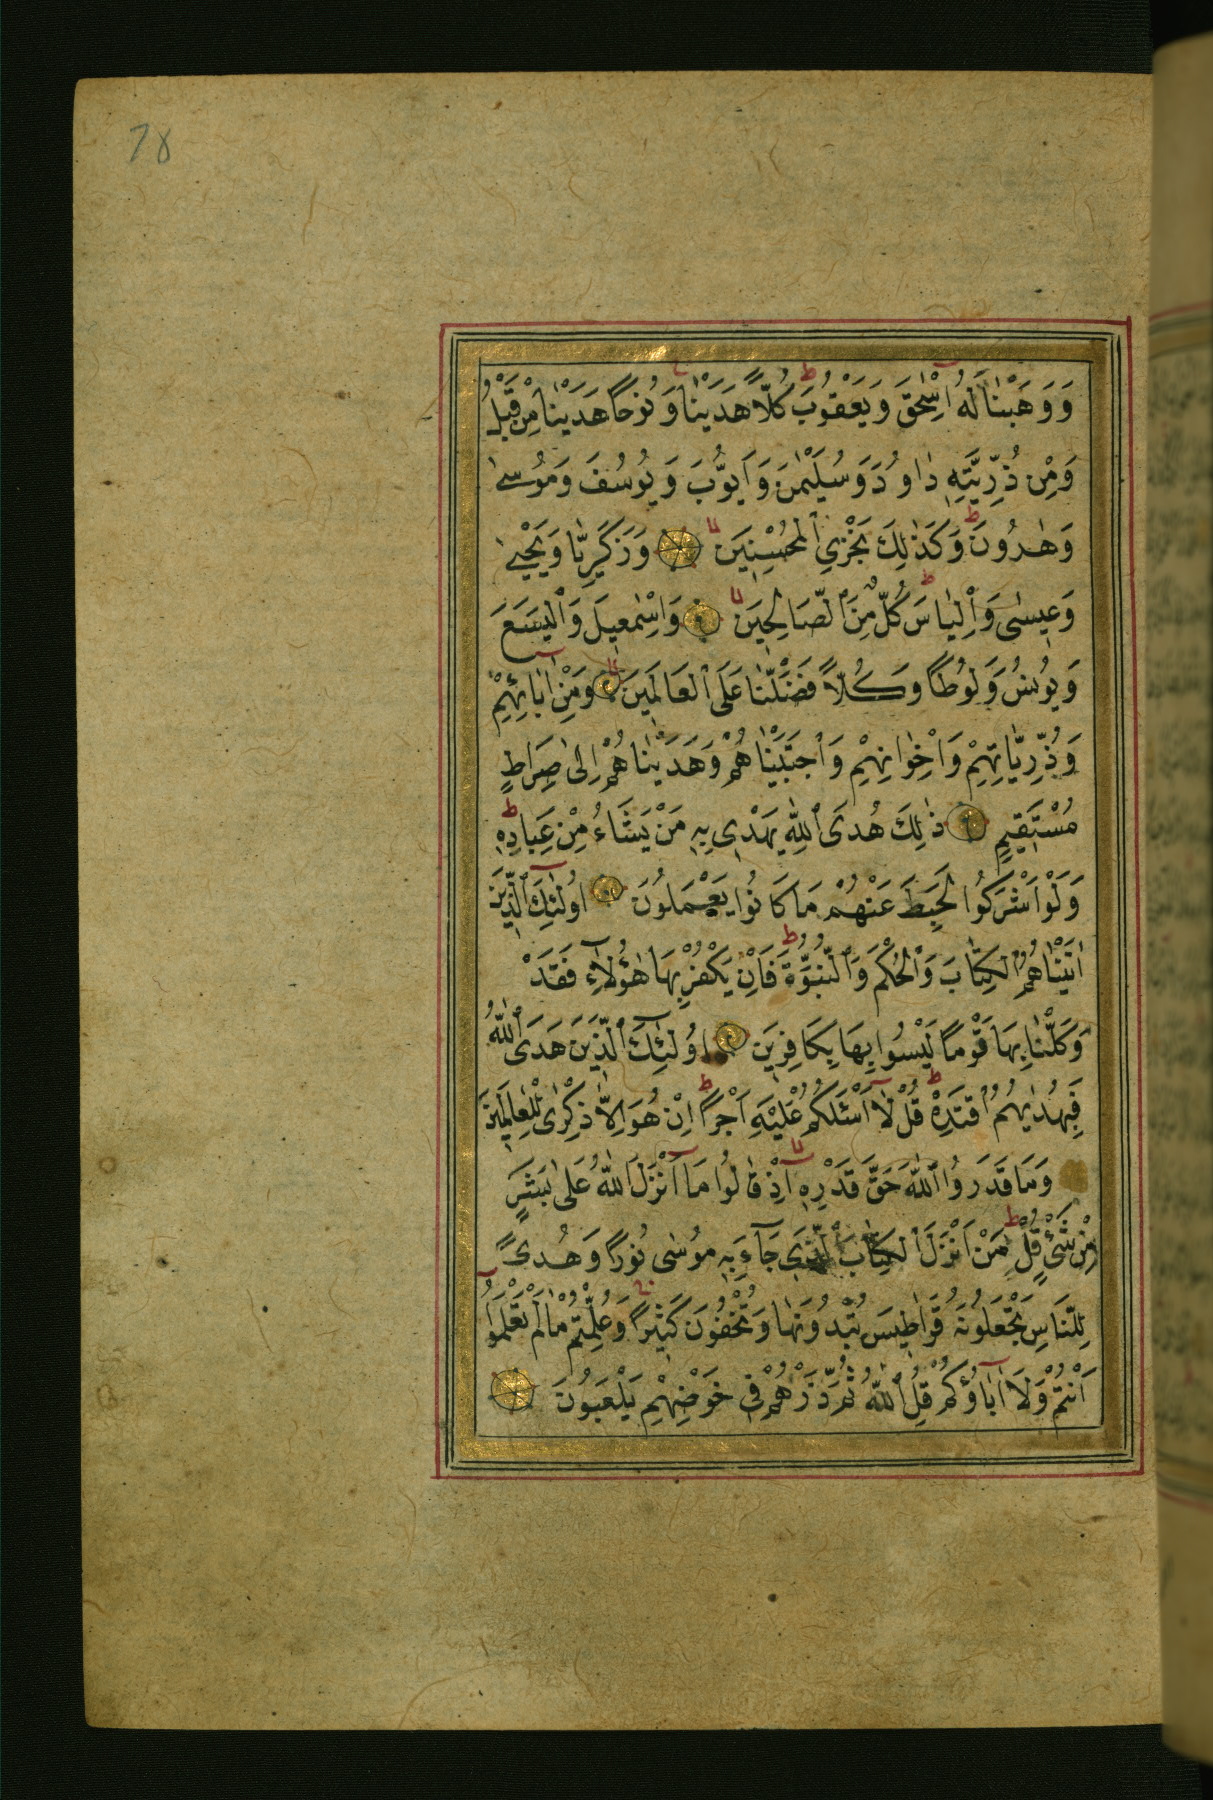 78
وَوَهَبْنَا لَهُ اِسْحٰقَ وَيَعْقُوبَ كُلًّا هَدَيْنَا وَنُوحًا هَدَيْنَا مِنْ قَبْلُ
وَمِنْ ذُرِّيَّتِهِ دَاوُدَ وَسُلَيْمٰنَ وَاَيُّوبَ وَيُوسُفَ وَمُوسٰى
وَهٰرُونَ وَكَذٰلِكَ نَجْزِي ٱلْمُحْسِنِينَ وَزَكَرِيَّا وَيَحْيٰى
وَعِيسٰى وَاِلْيَاسَ كُلٌّ مِنَ ٱلصَّالِحِينَ وَاِسْمٰعِيلَ وَٱلْيَسَعَ
وَيُونُسَ وَلُوطًا وَكُلًّا فَضَّلْنَا عَلَى ٱلْعَالَمِينَ وَمِنْ اٰبَائِهِمْ
وَذُرِّيَّاتِهِمْ وَاِخْوَانِهِمْ وَٱجْتَبَيْنَاهُمْ وَهَدَيْنَاهُمْ اِلٰى صِرَاطٍ
مُسْتَقِيمٍ ذٰلِكَ هُدَى ٱللّٰهِ يَهْدِي بِهِ مَنْ يَشَاءُ مِنْ عِبَادِهِ
وَلَوْ اَشْرَكُوا لَحَبِطَ عَنْهُمْ مَا كَانُوا يَعْمَلُونَ اُولٰئِكَ ٱلَّذِينَ
اٰتَيْنَاهُمُ ٱلْكِتَابَ وَٱلْحُكْمَ وَٱلنُّبُوَّةَ فَاِنْ يَكْفُرْ بِهَا هٰؤُلَاۤءِ فَقَدْ
وَكَّلْنَا بِهَا قَوْمًا لَيْسُوا بِهَا بِكَافِرِينَ اُولٰئِكَ ٱلَّذِينَ هَدَى ٱللّٰهُ
فَبِهُدٰيهُمُ ٱقْتَدِهْ قُلْ لَاۤ اَسْئَلُكُمْ عَلَيْهِ اَجْرًا اِنْ هُوَ اِلَّا ذِكْرٰى لِلْعَالَمِينَ
وَمَا قَدَرُوا ٱللّٰهَ حَقَّ قَدْرِهِ اِذْ قَالُوا مَاۤ اَنْزَلَ ٱللّٰهُ عَلٰى بَشَرٍ
مِنْ شَيْءٍ قُلْ مَنْ اَنْزَلَ ٱلْكِتَابَ ٱلَّذِي جَاۤءَ بِهِ مُوسٰى نُورًا وَهُدًى
لِلنَّاسِ تَجْعَلُونَهُ قَرَاطِيسَ تُبْدُونَهَا وَتُخْفُونَ كَثِيرًا وَعُلِّمْتُمْ مَا لَمْ تَعْلَمُوۤا
اَنْتُمْ وَلَاۤ اٰبَاۤؤُكُمْ قُلِ ٱللّٰهُ ثُمَّ ذَرْهُمْ فِي خَوْضِهِمْ يَلْعَبُونَ